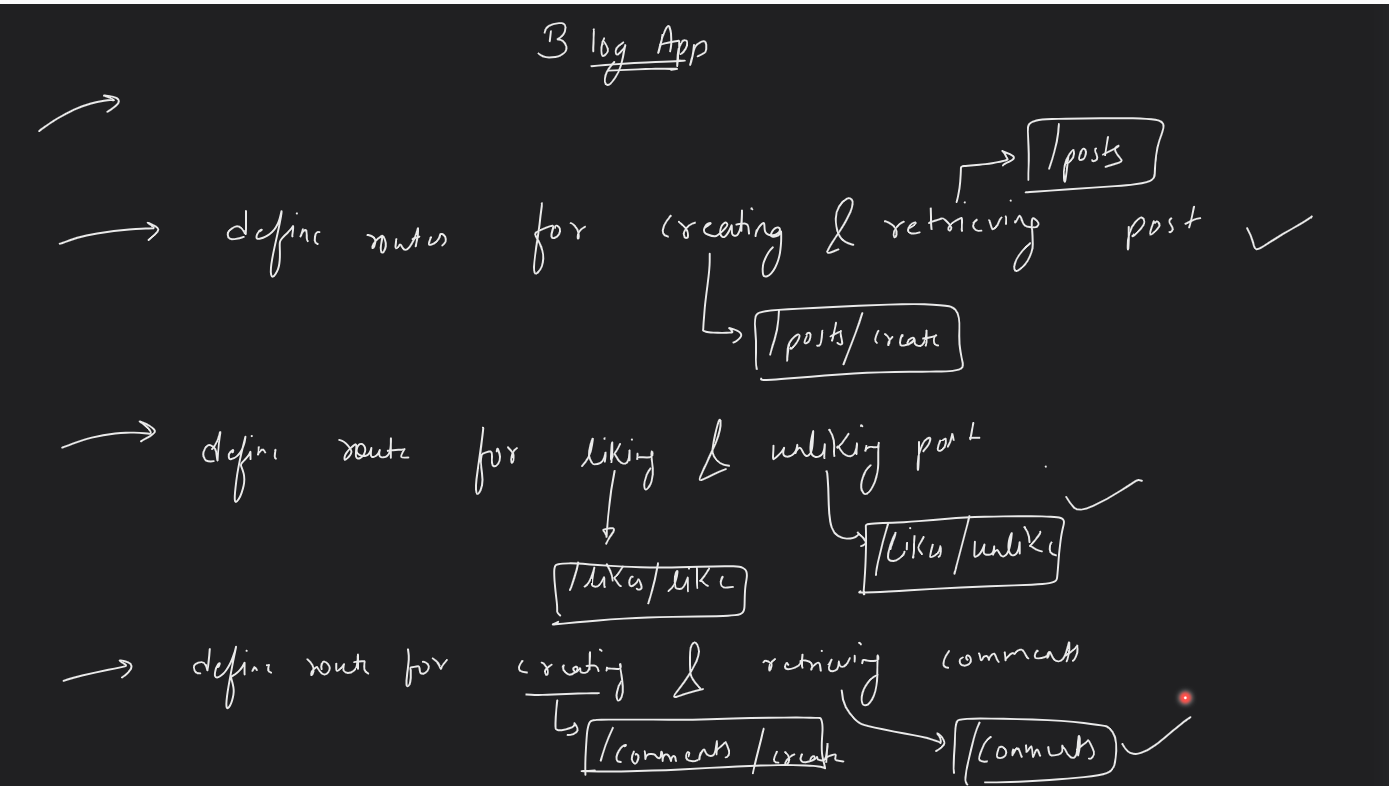 Blog App
/posts
define routes for creating & retrieving post
/posts/create
define route for liking & unliking post
/likes/unlike
/likes/like
define route for creating & retrieving comments
/comments/create
/comments